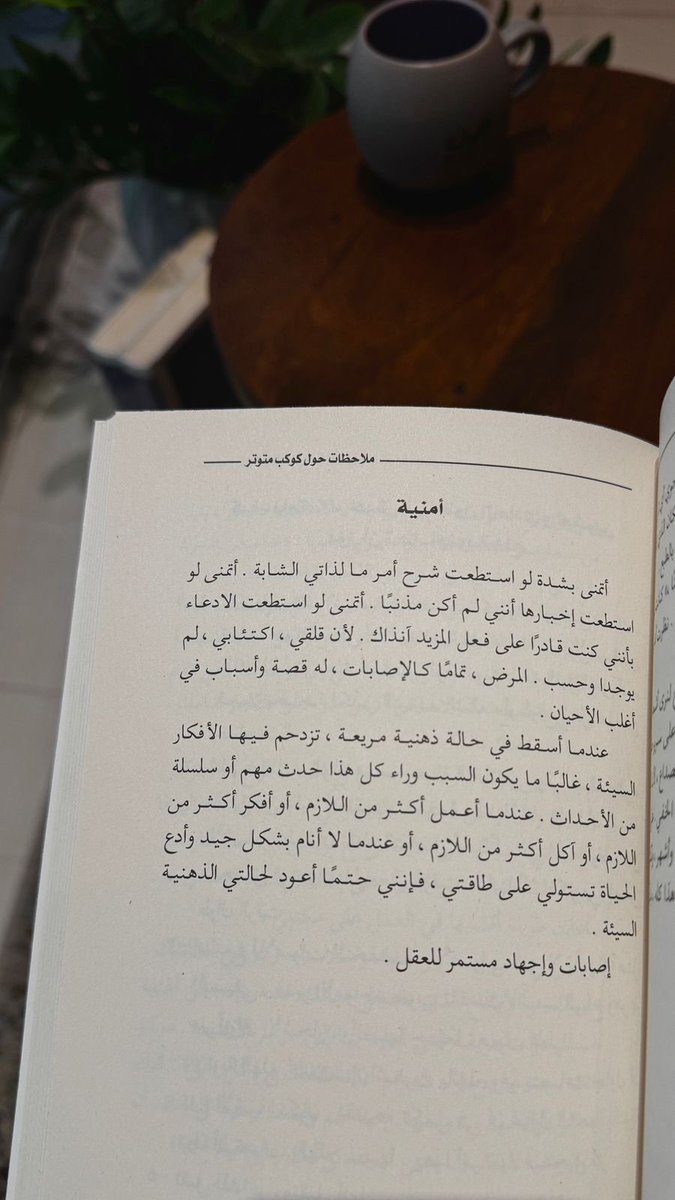 ملاحظات حول كوكب متوتر
أمنية
أتمنى بشدة لو استطعت شرح أمر ما لذاتي الشابة . أتمنى لو
استطعت إخبارها أنني لم أكن مذنبًا . أتمنى لو استطعت الادعاء
بأنني كنت قادرًا على فعل المزيد آنذاك . لأن قلقي ، اكتئابي ، لم
يوجدا وحسب . المرض ، تمامًا كالإصابات ، له قصة وأسباب في
أغلب الأحيان .
عندما أسقط في حالة ذهنية مريعة ، تزدحم فيها الأفكار
السيئة ، غالبًا ما يكون السبب وراء كل هذا حدث مهم أو سلسلة
من الأحداث . عندما أعمل أكثر من اللازم ، أو أفكر أكثر من
اللازم ، أو آكل أكثر من اللازم ، أو عندما لا أنام بشكل جيد وأدع
الحياة تستولي على طاقتي ، فإنني حتمًا أعود لحالتي الذهنية
السيئة .
إصابات وإجهاد مستمر للعقل .